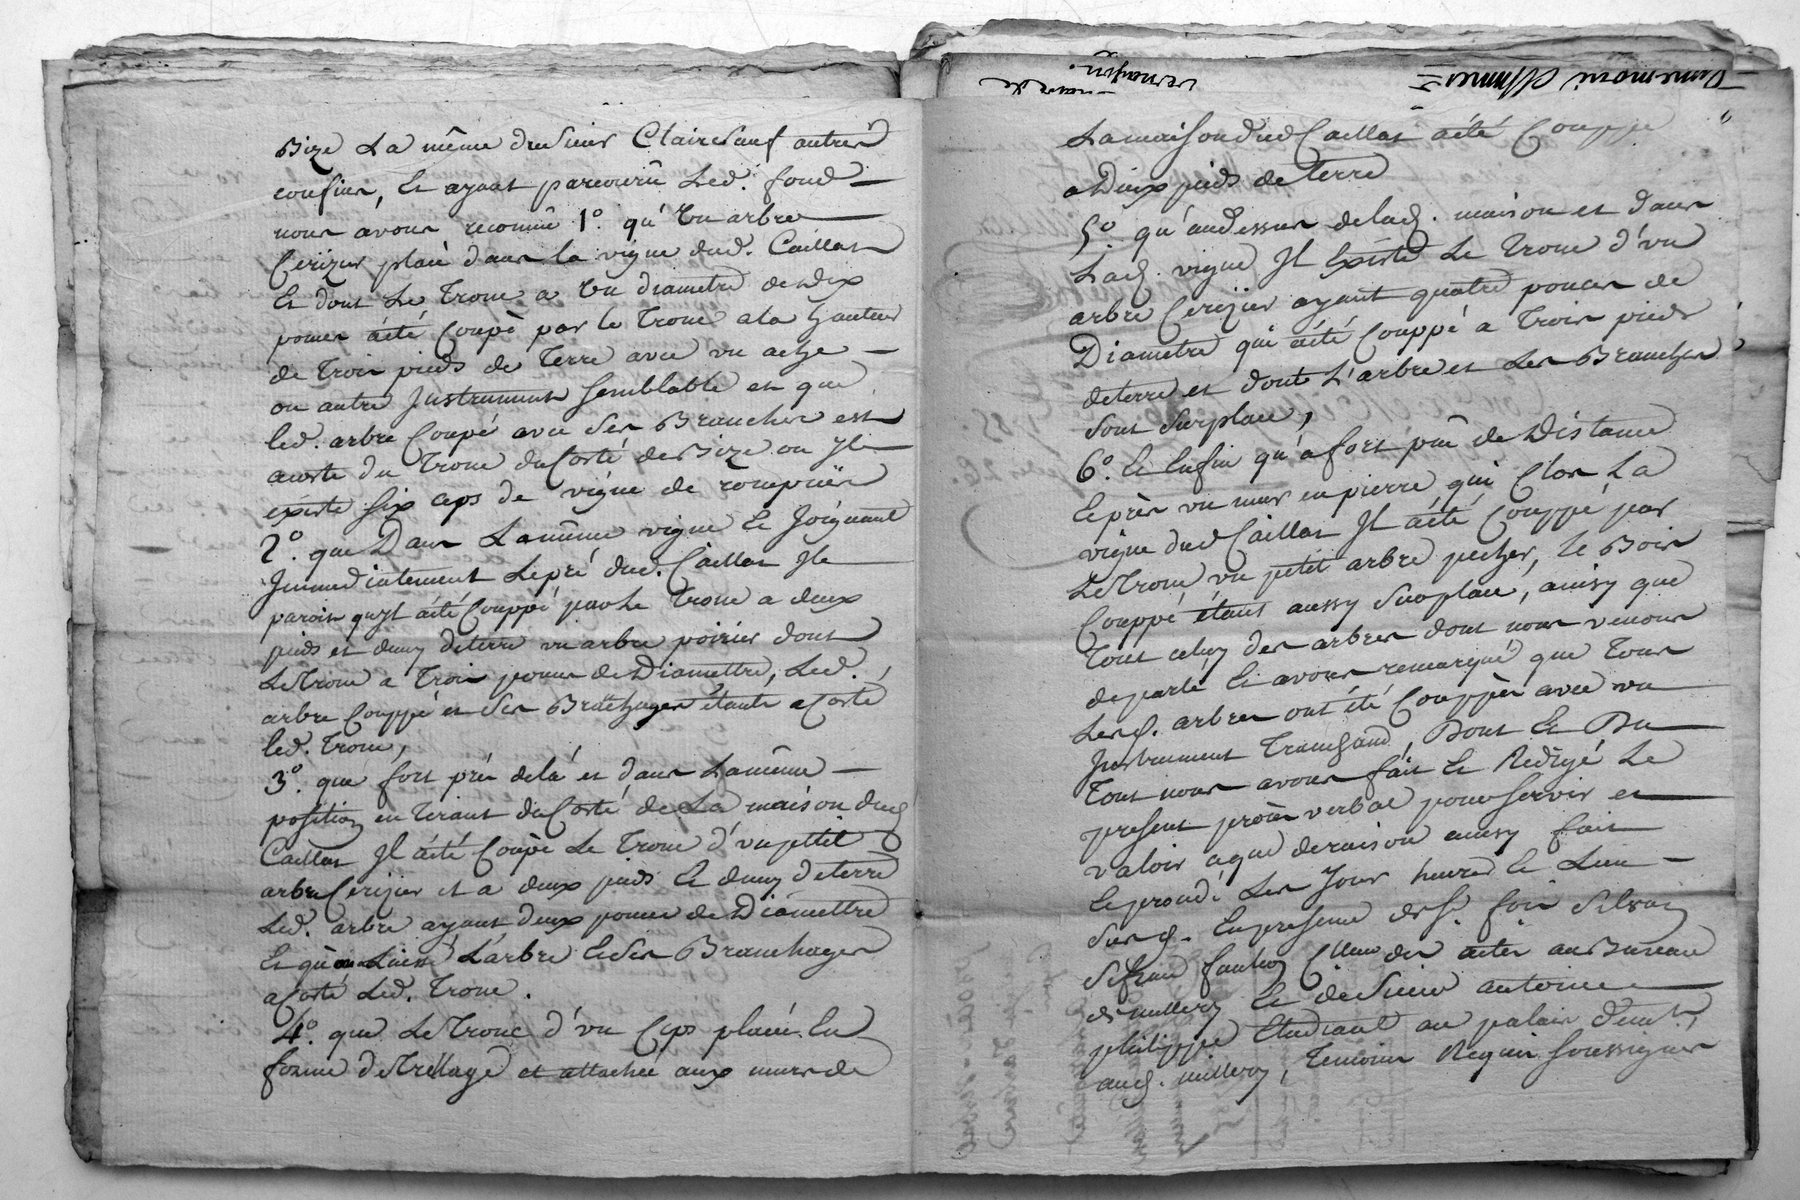 Bize La même du Sieur Claire Sauf autres
confins, Et ayant parcourû Led. fond
nous avons reconnû 1º. qu'Un arbre
Cerizier placé dans la vigne dud. Caillat
Et dont Le Tronc a Un diametre de Dix
pouces a été Coupé par le Tronc a la hauteur
de Trois pieds de Terre avec un ache
ou autre Instrument Semblable et que
led. arbre Coupé avec Ses Branches est
a costé du Tronc du Costé de Bize ou Il
existe Six ceps de vigne de rompües
2º. que Dans La même vigne Et Joignant
Immediatement Le pré dud. Caillat Il
parois qu'Il a été Couppé par le Tronc a deux
pieds et demy de terre un arbre poirier dont
Le Tronc a Trois pouces de Diamettre, Led.
arbre Couppé et Ses Branchages étants a Costé
led. Tronc,
3º. que fort prés de la et dans La même
position en tirant du Costé de La maison dud
Caillat Il a été Coupé Le Tronc d'un petit
arbre Cerizier et a deux pieds Et demy de terre
Led. arbre ayant deux pouces de Diamettre
Et qu'on a Laissé L'arbre Et Ses Branchages
a Costé Led. Tronc.
4º. que Le Tronc d'un Ceps placé En
forme de Trellage et attachée aux murs de
La maison dud Caillat a été Couppé
a Deux pieds de Terre
5º. qu'au dessus de lad. maison et dans
Lad. vigne Il Existe Le Tronc d'un
arbre Cerizier ayant quatre pouces de
Diametre qui a été Couppé a Trois pieds
de terre et dont L'arbre et Les Branches
Sont Sur place,
6º. Et Enfin qu'a fort peû de Distance
Et près un mur en pierre qui Clos La
vigne dud Caillat Il a été Couppé par
Le Tronc un petit arbre pecher, le Bois
Couppé étant aussy Sur place, ainsy que
Tout celuy des arbres dont nous venons
de parlé Et avons remarqué que Tous
Lesd. arbres ont été Couppés avec un
Instrument Tranchand Dont Et Du
Tout nous avons fait Et Redigé Le
present procès verbal pour Servir et
valoir a que de raison ainsy fait
Et procedé Les Jour heures Et Lieu
Susd. En presence de Sr.
au Bureau
de millery Et de Sieur antoine
philippe Etudiant au palais
aud. millery, Temoins Requis Soussignés